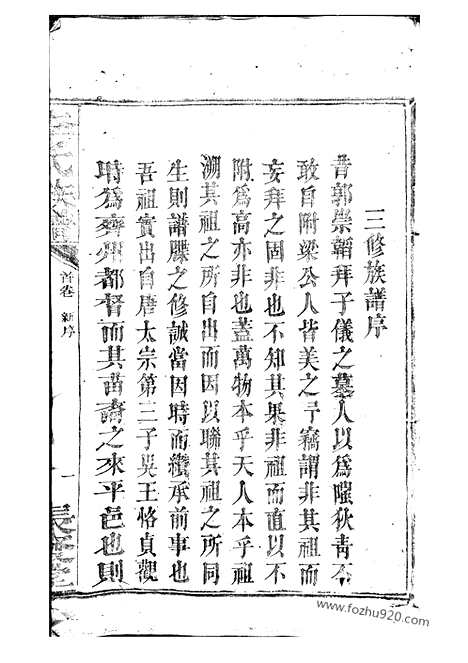 三修族譜序
昔郭崇韜拜子儀之墓人以為嗤狄青不
敢自附梁公人皆美之予竊謂非其祖而
妄拜之固非也不知其果非祖而直以不
附為高亦非也蓋萬物本乎天人本乎祖
溯其祖之所自出而因以聯其祖之所同
生則譜牒之修誠當因時而纘承前事也
吾祖實出自唐太宗第三子吳王恪貞觀
時為齊州都督而其苗裔之來平邑也則
氏族譜
首卷 新序
一
www.fozhu920.com